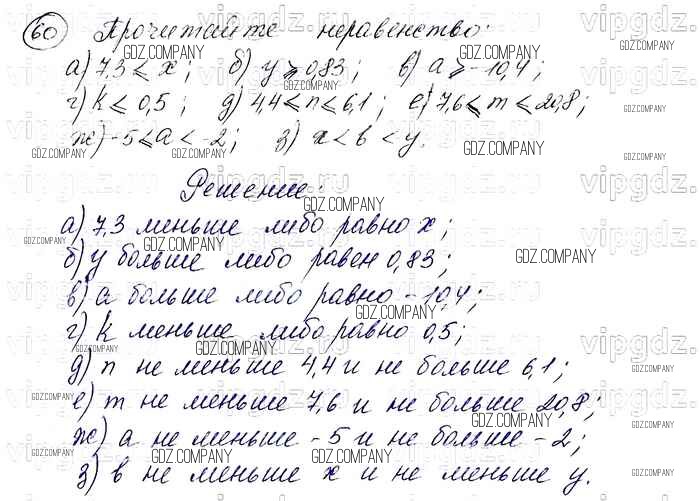 60 Прочитайте неравенство:
а) 7,3 ⩽ x; б) y ⩾ 0,83; в) a ⩾ -10,4;
г) k ⩽ 0,5; д) 4,4 ⩽ n ⩽ 6,1; е) 7,6 ⩽ m ⩽ 20,8;
ж) -5 ⩽ a < -2; з) x < в < y.
Решение:
а) 7,3 меньше либо равно x;
б) y больше либо равен 0,83;
в) a больше либо равно -10,4;
г) k меньше либо равно 0,5;
д) n не меньше 4,4 и не больше 6,1;
е) m не меньше 7,6 и не больше 20,8;
ж) a не меньше -5 и не больше -2;
з) в не меньше x и не меньше y.
vipgdz.ru
GDZ.COMPANY